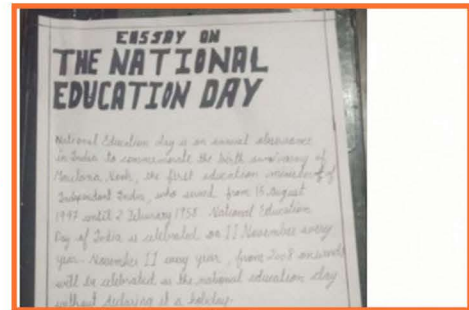 ESSSAY ON
THE NATIONAL
EDUCATION DAY
National Education day is an annual observance
in India to commemorate the birth anniversary of
Maulana, the first education minister of
Independent India, who served from 15 August
1947 until 2 February 1958. National Education
Day of India is celebrated on 11 November every
year. November 11 every year, from 2008 onwards
will be celebrated as the national education day
without declaring it a holiday.